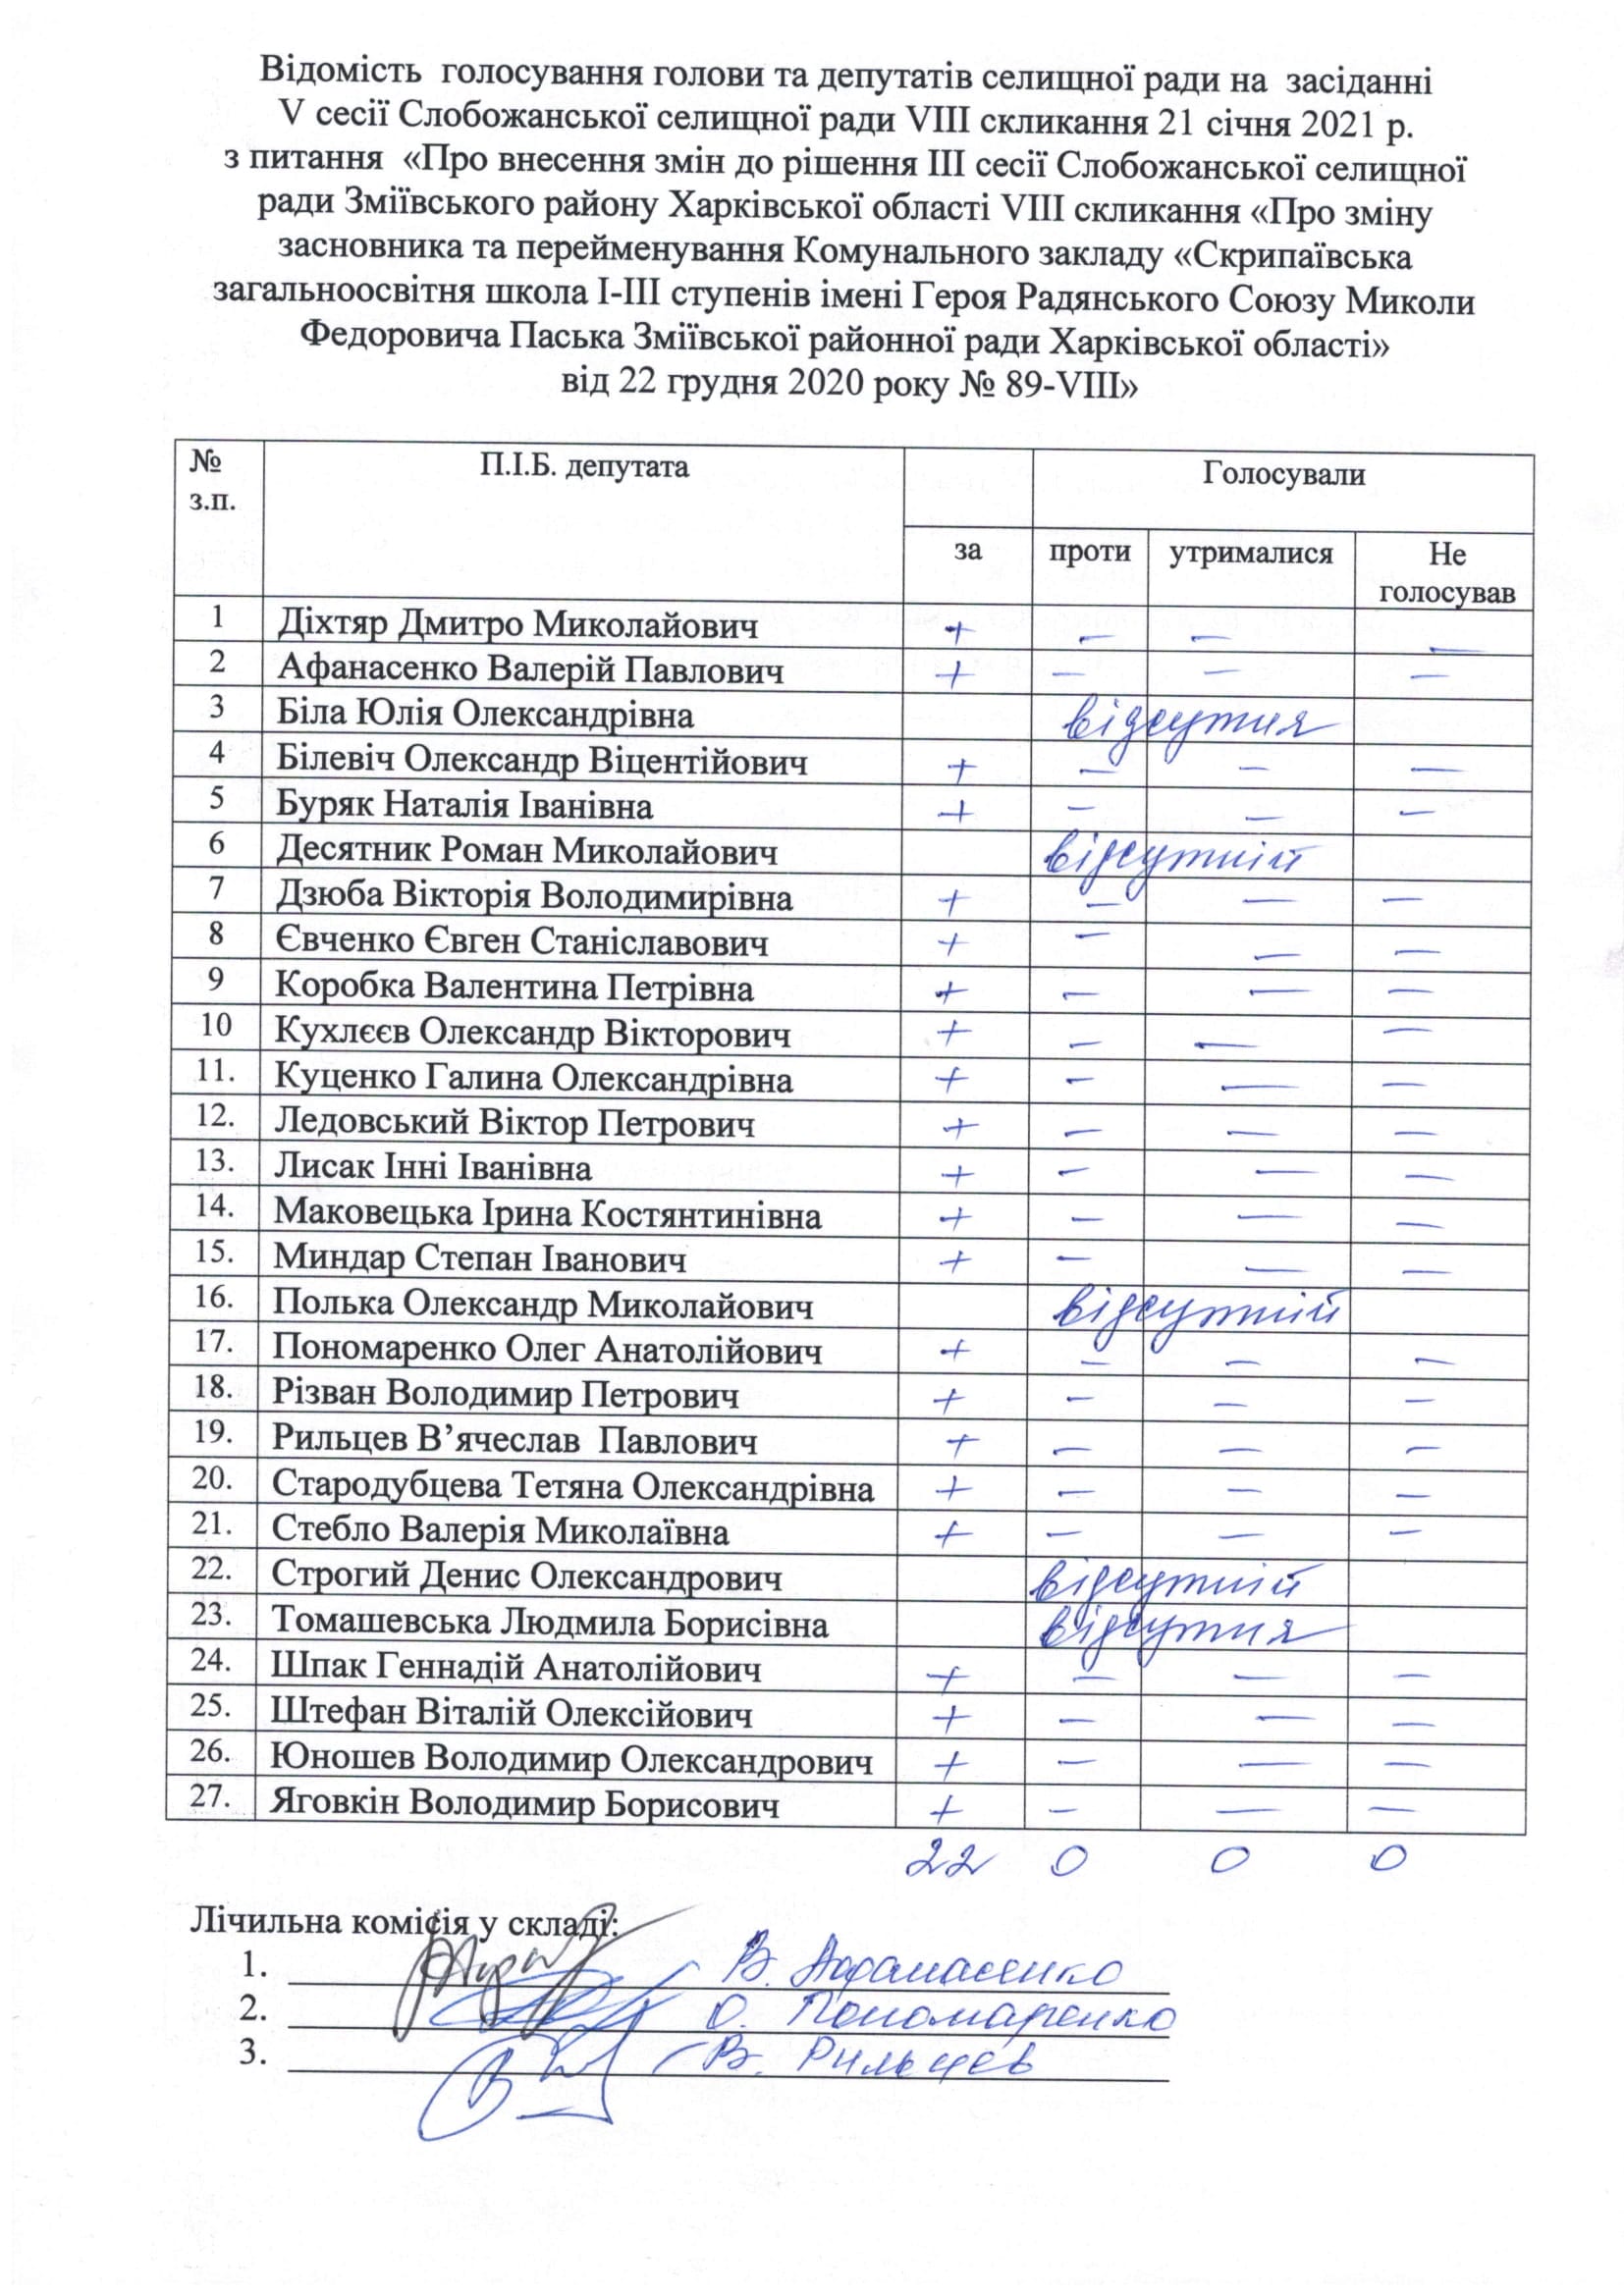 Відомість голосування голови та депутатів селищної ради на засіданні
V сесії Слобожанської селищної ради VIII скликання 21 січня 2021 р.
з питання «Про внесення змін до рішення III сесії Слобожанської селищної
ради Зміївського району Харківської області VIII скликання «Про зміну
засновника та перейменування Комунального закладу «Скрипаївська
загальноосвітня школа І-ІІІ ступенів імені Героя Радянського Союзу Миколи
Федоровича Паська Зміївської районної ради Харківської області»
від 22 грудня 2020 року № 89-VIII»
№ з.п. П.І.Б. депутата Голосували
за проти утрималися Не голосував
1 Діхтяр Дмитро Миколайович + – – –
2 Афанасенко Валерій Павлович + – – –
3 Біла Юлія Олександрівна відсутня
4 Білевіч Олександр Віцентійович + – – –
5 Буряк Наталія Іванівна + – – –
6 Десятник Роман Миколайович відсутній
7 Дзюба Вікторія Володимирівна + – – –
8 Євченко Євген Станіславович + – – –
9 Коробка Валентина Петрівна + – – –
10 Кухлєєв Олександр Вікторович + – – –
11. Куценко Галина Олександрівна + – – –
12. Ледовський Віктор Петрович + – – –
13. Лисак Інні Іванівна + – – –
14. Маковецька Ірина Костянтинівна + – – –
15. Миндар Степан Іванович + – – –
16. Полька Олександр Миколайович відсутній
17. Пономаренко Олег Анатолійович + – – –
18. Різван Володимир Петрович + – – –
19. Рильцев В’ячеслав Павлович + – – –
20. Стародубцева Тетяна Олександрівна + – – –
21. Стебло Валерія Миколаївна + – – –
22. Строгий Денис Олександрович відсутній
23. Томашевська Людмила Борисівна відсутня
24. Шпак Геннадій Анатолійович + – – –
25. Штефан Віталій Олексійович + – – –
26. Юношев Володимир Олександрович + – – –
27. Яговкін Володимир Борисович + – – –
22 0 0 0
Лічильна комісія у складі:
1. В. Афанасенко
2. О. Пономаренко
3. В. Рильцев